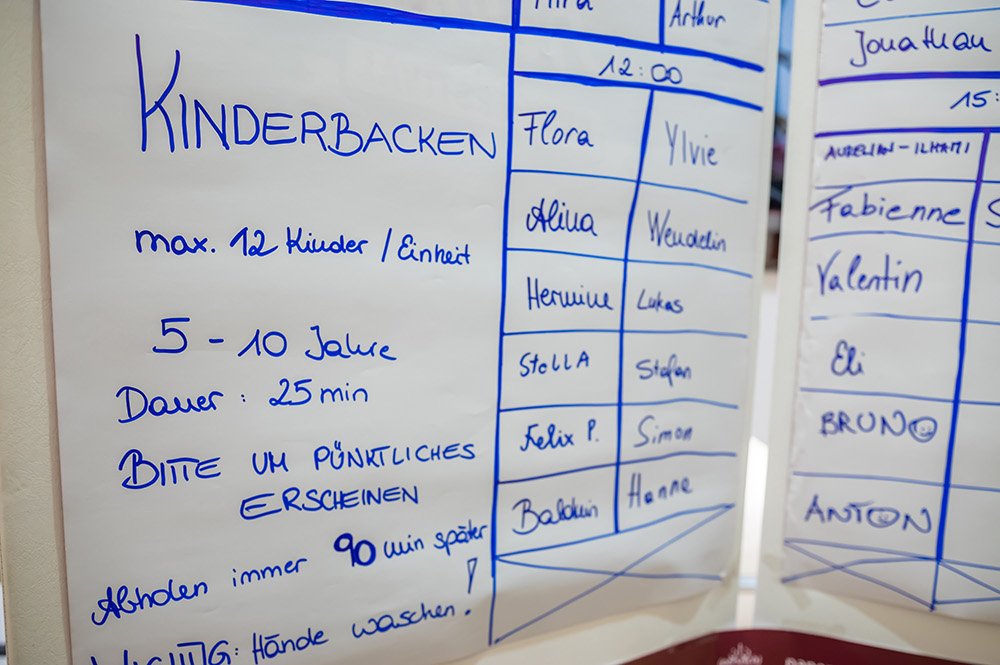 KINDERBACKEN
max. 12 Kinder / Einheit
5 - 10 Jahre
Dauer : 25 min
BITTE UM PÜNKTLICHES
ERSCHEINEN
Abholen immer 90 min später
WICHTIG: Hände waschen!
Arthur
12:00
Flora Ylvie
Alina Wendelin
Hermine Lukas
StellA Stefan
Felix P. Simon
Baldwin Hanna
Jonathan
15:
AURELIAN - ILHAMI
Fabienne
Valentin
Eli
BRUNO
ANTON